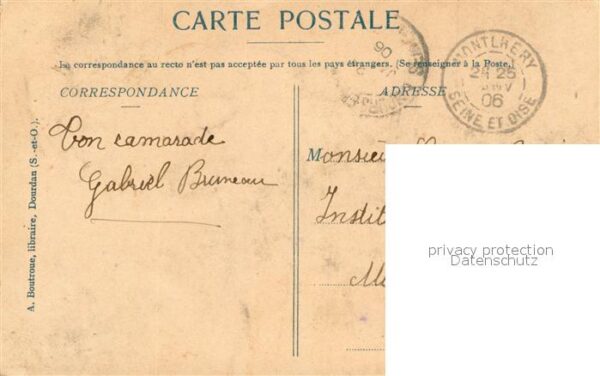 CARTE POSTALE
La correspondance au recto n'est pas acceptée par tous les pays étrangers. (Se renseigner à la Poste.)
CORRESPONDANCE
ADRESSE
MONTLHERY
25
06
SEINE ET OISE
06
Ton camarade
Gabriel Bruneau
Monsieur
Instit
A. Boutroue, libraire, Dourdan (S.-et-O.)
privacy protection
Datenschutz